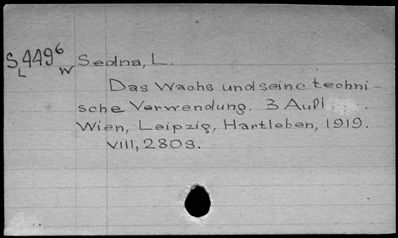 S 449⁶ Sedna, L.
L W
Das Wachs und seine techni-
sche Verwendung. 3 Aufl
Wien, Leipzig, Hartleben, 1919.
VIII, 280S.